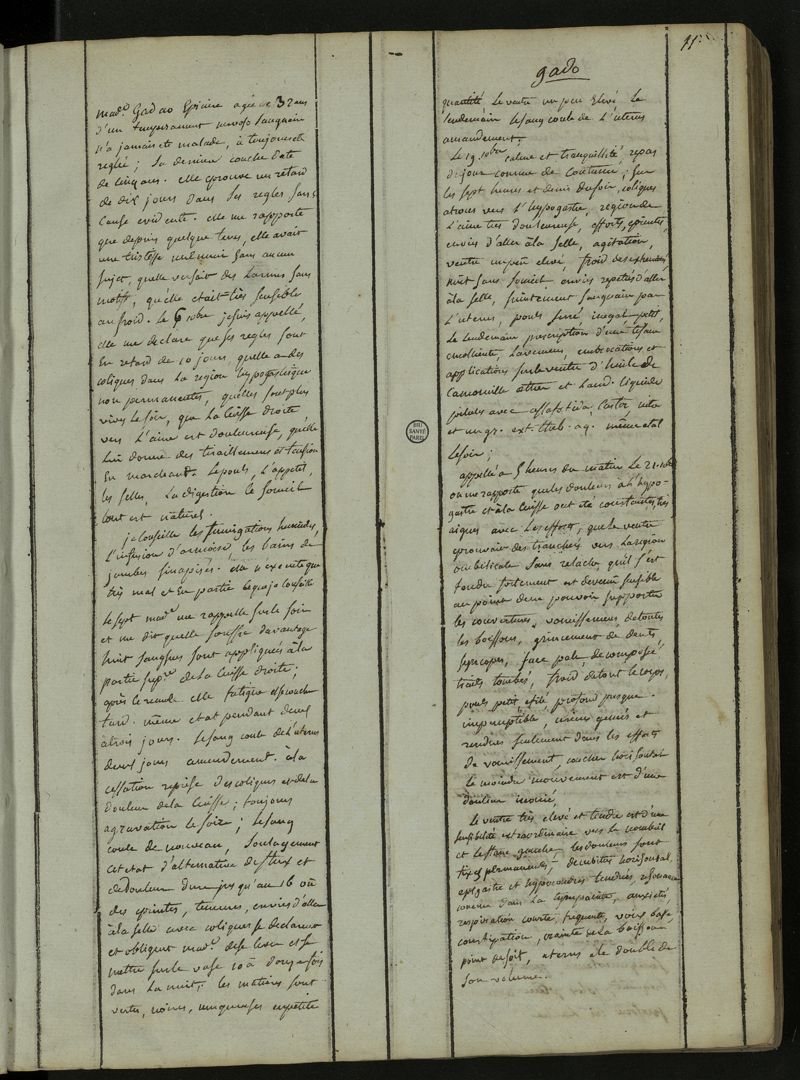 11
gado
mad.e Gadao Epiciere agée de 32 ans
d'un temperament nervoso sanguin
n'a jamais eté malade, a toujours eté
reglée; sa derniere couche date
de cinq ans. elle eprouve un retard
de dix jours dans ses regles sans
cause evidente. elle me rapporte
que depuis quelque tems, elle avait
une tristesse sans aucun
sujet, quelle versait des larmes sans
motif, quelle etait très sensible
au froid. le 6 10bre je suis appellé,
elle me declare que ses regles sont
En retard de 10 jours, quelle a des
coliques dans la region hypogastrique
non permanentes, quelles sont plus
vives le soir, que la cuisse droite
vers l'aine est douloureuse, quelle
lui donne des tiraillemens et tension
En marchant. le pouls, l'appetit,
les selles, la digestion le someil
tout est naturel.
je conseille les fumigations humides,
l'infusion d'armoise les bains de
jambes sinapisés. elle n'execute que
très mal et En partie ce que je conseille
le sept mad.e me rappelle sur le soir
et me dit quelle souffre davantage
huit sangsues sont appliquées à la
partie sup.re de la cuisse droite;
après le elle fatigue et se couche
tard. même etat pendant deux
a trois jours. le sang coule de l'uterus
deux jours amendement. à la
cessation reprise des coliques et de la
douleur de la cuisse; toujours
agravation le soir; le sang
coule de nouveau, soulagement
cet etat d'alternative de flux et
de douleur dure jusqu'au 16 où
des epintes, tenesmes, envies d'aller
à la selle avec coliques se declarent
et obligent mad.e de se lever et se
mettre sur le vase 10 à douze fois
dans la nuit; les matieres sont
vertes, noires, muqueuses en petite
quantité le ventre un peu Elevé le
lendemain le sang coule de l'uterus
amandement.
Le 19 10bre calme et tranquillité, repas
du jour comme de coutume; sur
les sept heures et demie du soir, coliques
atroces vers l'hypogastre, region de
l'aine très douloureuse, efforts, epintes,
envies d'aller à la selle, agitation,
ventre un peu elevé, froid des extremités,
nuit sans someil envies repetées d'aller
à la selle, suintement sanguin par
l'uterus, pouls serré inegal petit,
le lendemain prescription d'une tisane
emolliente, lavemens, embrocations et
applications sur le ventre d'huile de
Camomille ether et Laud. liquide
pilules avec assafoetida, Castor
et un gr. ext. theb. aq. même etat
le soir;
appellé a 5 heures du matin le 21.
on me rapporte que les douleurs à l'hypo-
gastre et à la cuisse ont eté constantes, très
aigues avec les efforts, que le ventre
eprouvait des tranchées vers la region
ombilicale sans relache, qu'il s'est
tendu fortement et devenu sensible
au point de ne pouvoir supporter
les couvertures, vomissemens de toutes
les boissons, grincement de dents,
syncopes, face pale decomposée
traits tombés, froid de tout le corps,
pouls petit, filé, profond presque
imperceptible, urines genées et
rendues seulement dans les efforts
de vomissement, coucher horisontal
le moindre mouvement est d'une
douleur inouie,
le ventre très elevé et tendu est d'une
sensibilité extraordinaire vers le nombril
et le flanc gauche les douleurs sont
fixes permanentes, decubitus horisontal,
epigastre et hypocondres tendus, resonance
comme dans la tympanite, anxietés,
respiration courte, frequente, voix basse,
constipation, crainte de la boisson
point de soif, uterus de double de
son volume.
BIU
SANTÉ
PARIS